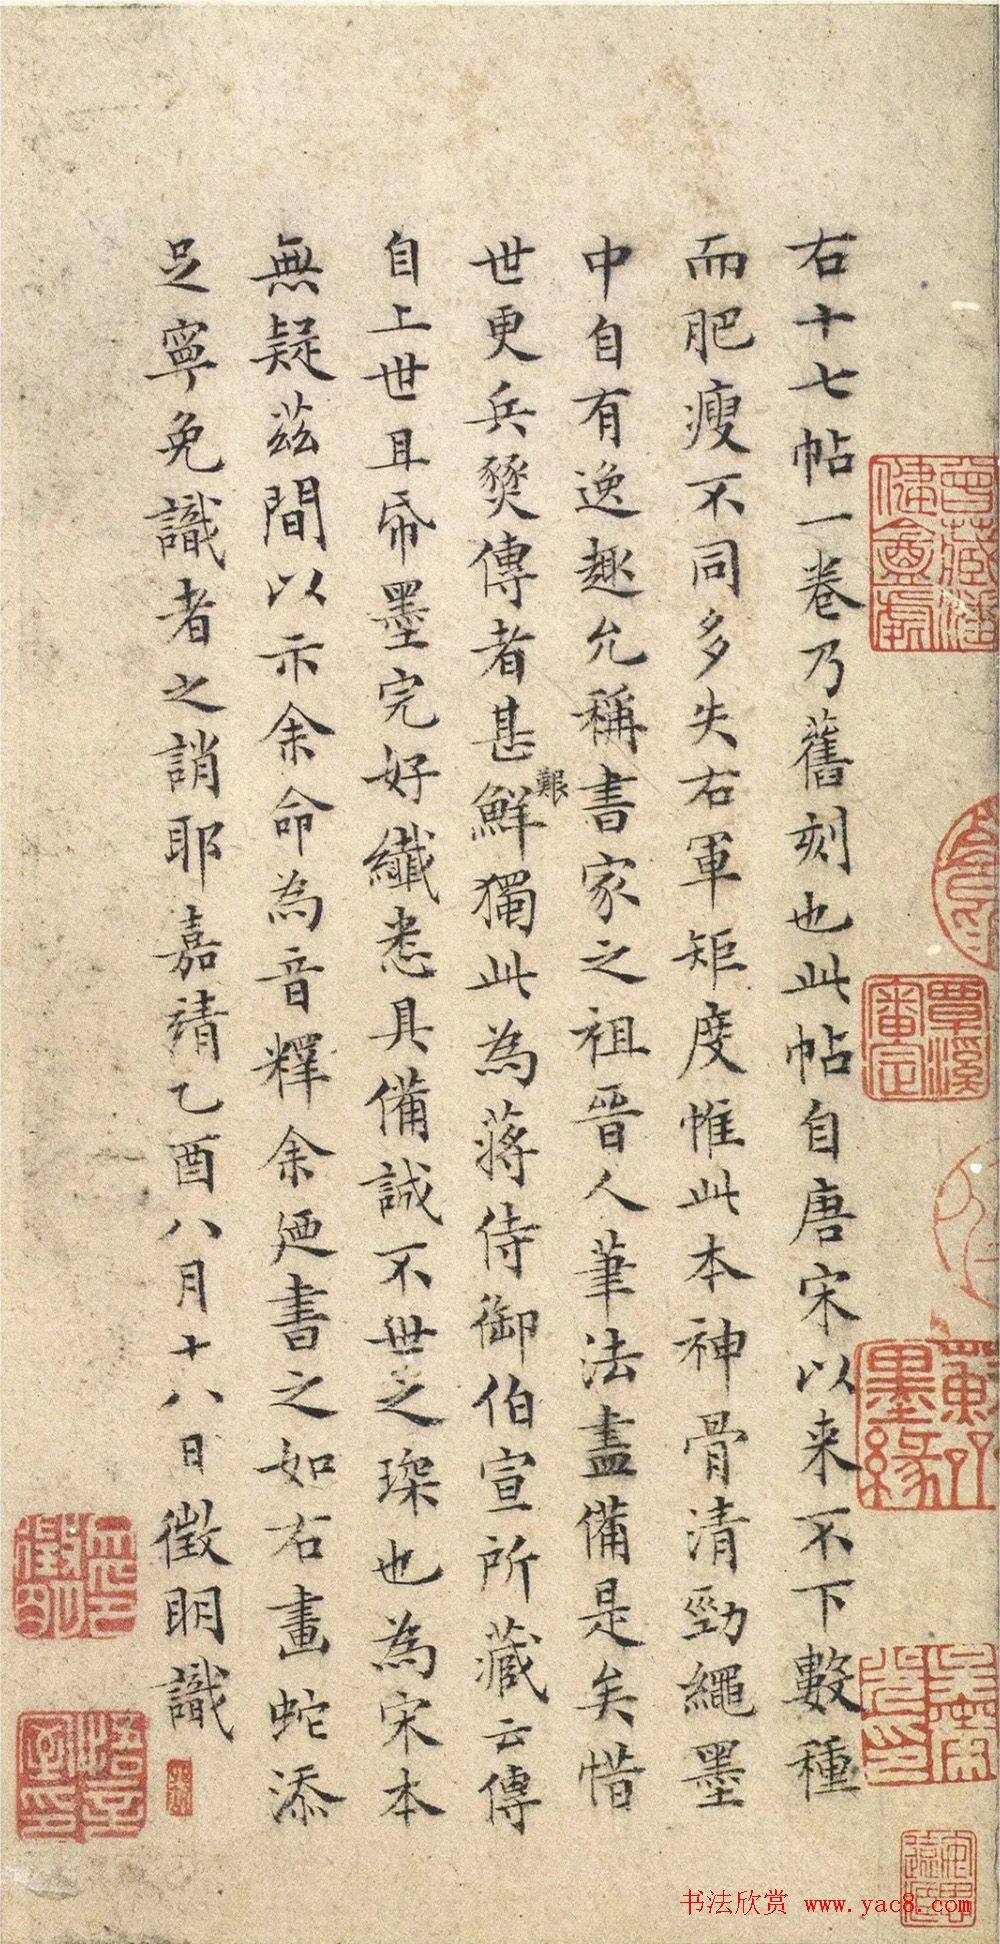 右十七帖一卷乃舊刻也此帖自唐宋以来不下數種
而肥瘦不同多失右軍矩度惟此本神骨清勁繩墨
中自有逸趣允稱書家之祖晉人筆法盡備是矣惜
世更兵燹傳者甚鮮獨此為蔣侍御伯宣所藏云傳
艱
自上世且帋墨完好纖悉具備誠不世之琛也為宋本
無疑茲間以示余命為音釋余廼書之如右畫蛇添
足寧免識者之誚耶嘉靖乙酉八月十八日徵明識
曾藏潘健盦處
覃溪審定
蘇齋墨緣
徵明
悟言室印
书法欣赏 www.yac8.com